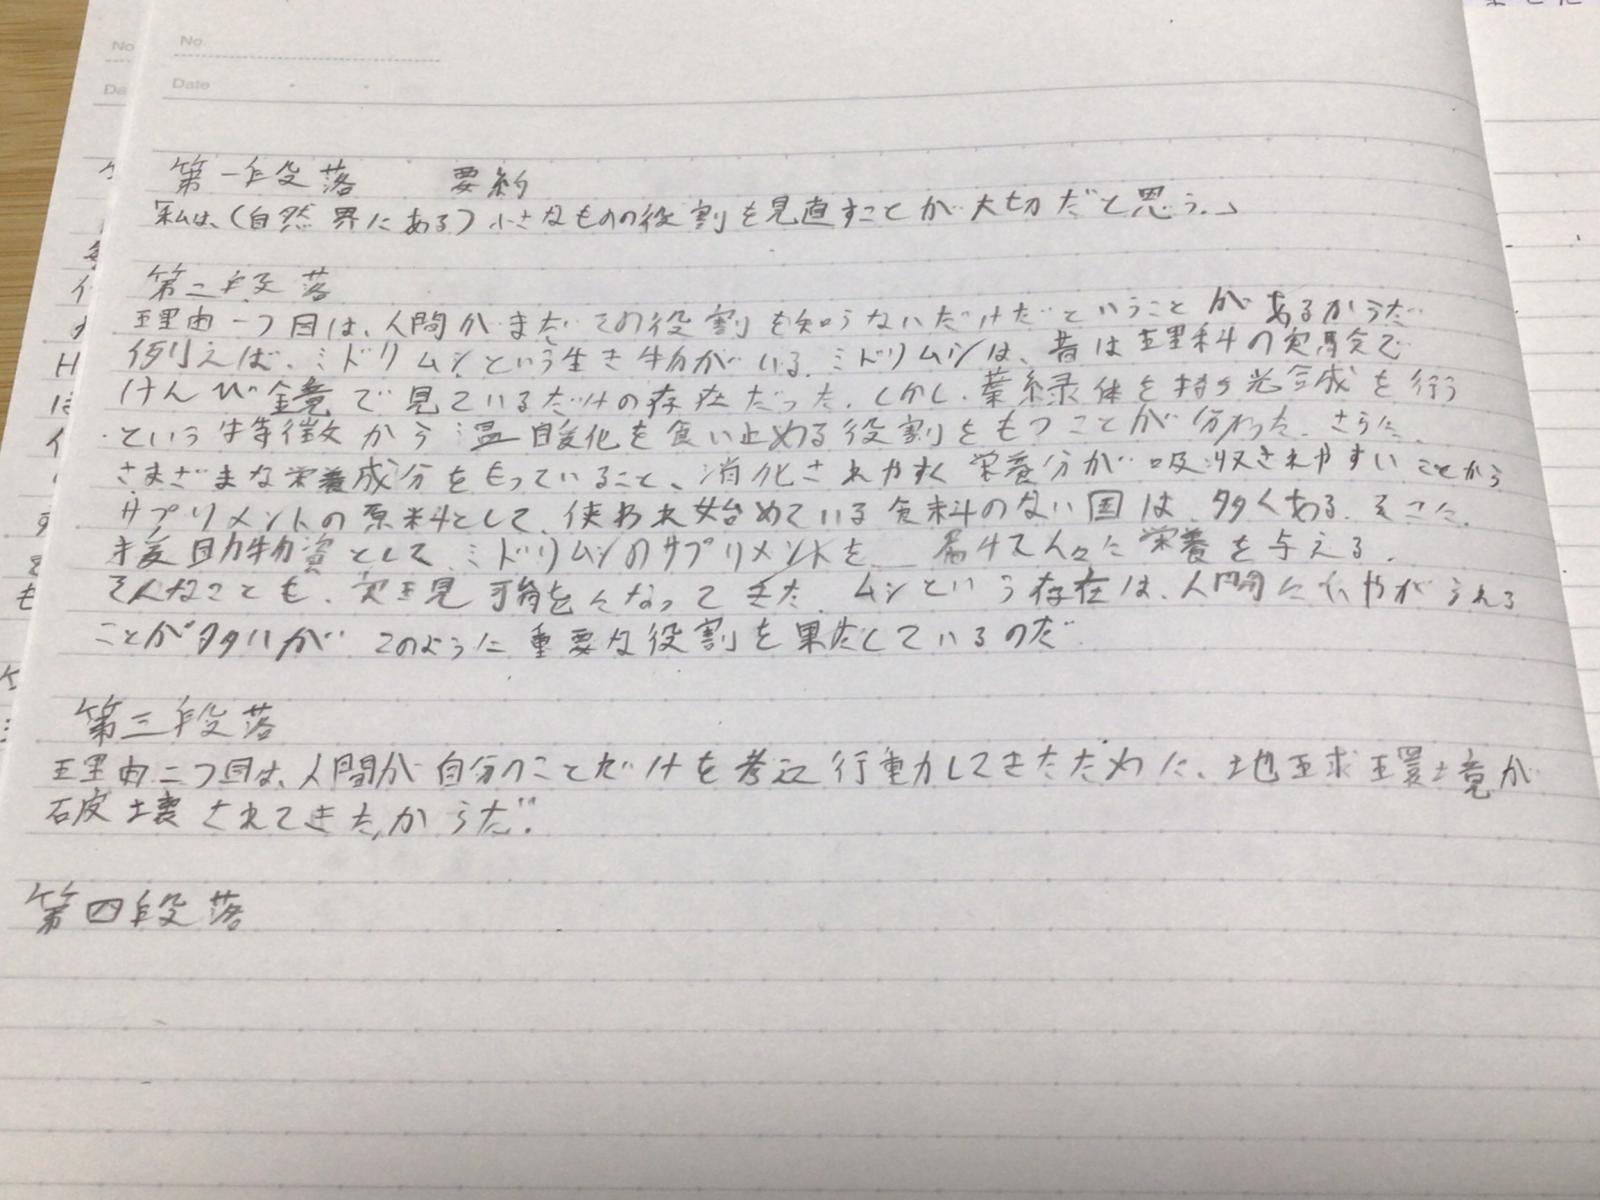 No.
Date
第一段落 要約
「私は、(自然界にある)小さなものの役割を見直すことが大切だと思う。」
第二段落
理由一つ目は、人間がまだその役割を知らないだけだということがあるからだ
例えば、ミドリムシという生き物がいる。ミドリムシは、昔は理科の実験で
けんび鏡で見ているだけの存在だった。しかし、葉緑体を持ち光合成を行う
という特徴から温暖化を食い止める役割をもつことが分かった。さらに、
さまざまな栄養成分をもっていること、消化されやすく栄養分が吸収されやすいことから
サプリメントの原料として、使われ始めている食料のない国は、多くある。そこに、
援助物資として、ミドリムシのサプリメントを 届けて人々に栄養を与える。
そんなことも、実現可能をになってきた。ムシという存在は、人間にいやがられる
ことが多いが、このように重要な役割を果たしているのだ
第三段落
理由二つ目は、人間が自分のことだけを考え行動してきたために、地球環境が
破壊されてきたからだ。
第四段落